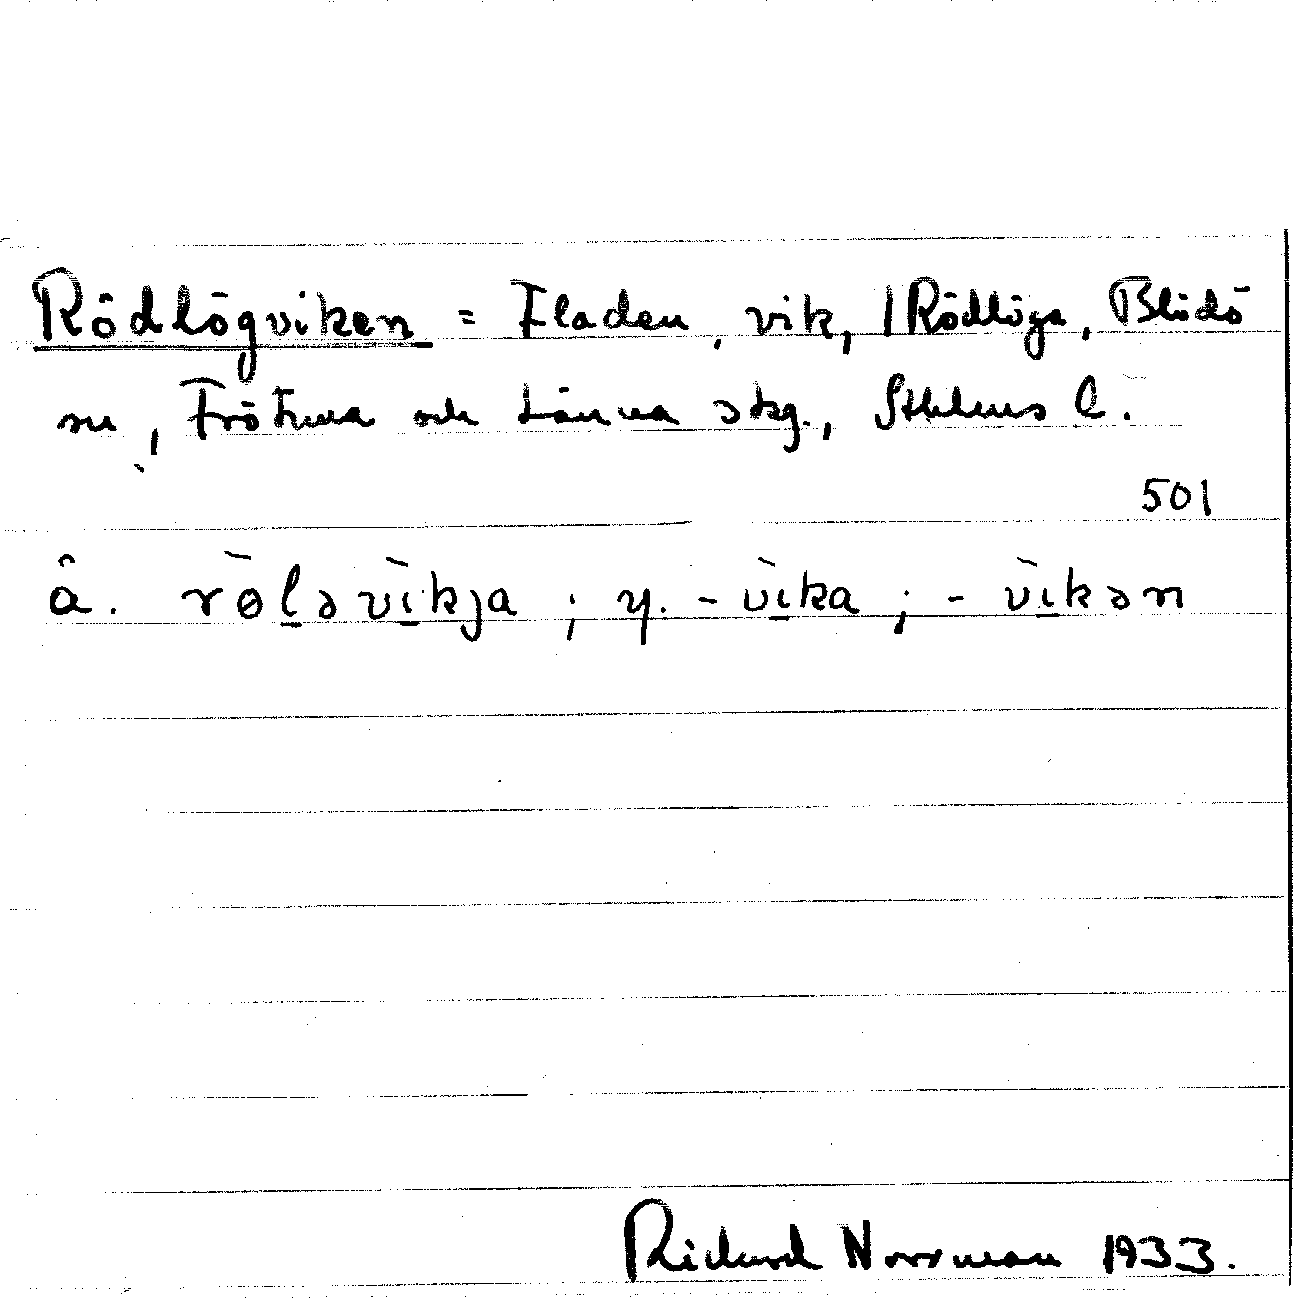 Rödlögviken = Fladen, vik, / Rödlöga, Blidö
sn, Frötuna och Länna skg., Sthlms l.
501
â. rø̀l̲əvi̲kja ; y. -vi̲ka ; -vi̲kən
Richard Norrman 1933.